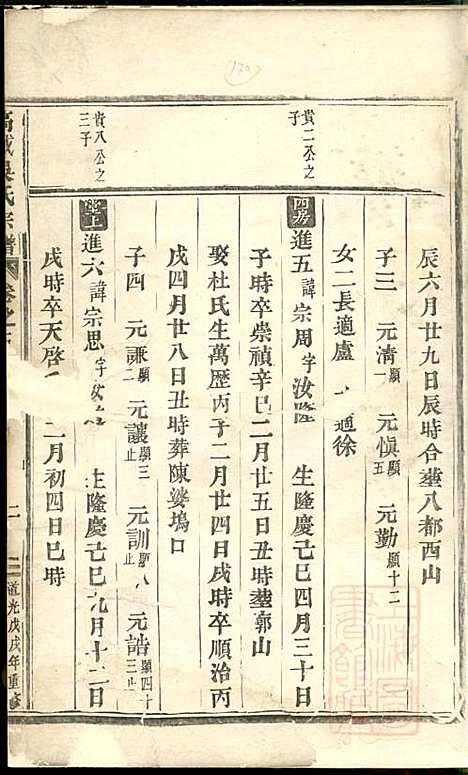 辰六月廿九日辰時合塟八都西山
子三 元清顯一 元愼顯五 元勤顯十二
女二長適盧 適徐
貴二公之子
四房進五諱宗周字汝隆 生隆慶己巳四月三十日
子時卒崇禎辛巳二月廿五日丑時塟郭山
娶杜氏生萬歷丙子二月廿四日戌時卒順治丙
戌四月廿八日丑時葬陳婆塢口
子四 元謙顯二 元讓顯三止 元訓顯八止 元誥顯四十三止
貴八公之三子
進六諱宗思字汝 生隆慶己巳九月十二日
戌時卒天啓 二月初四日巳時
氏宗譜 卷之 二 道光戊戌年重修
170